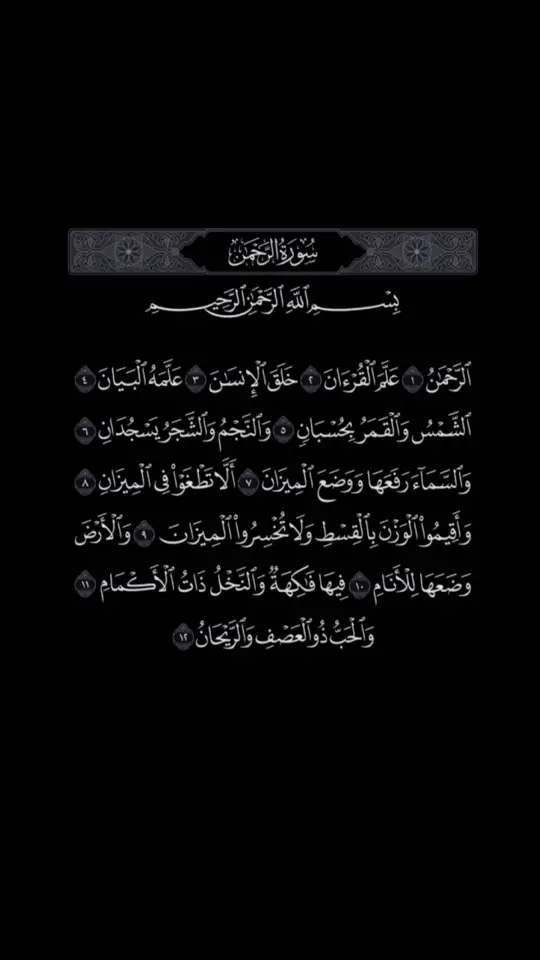 سُورَةُ الرَّحْمَٰن
بِسْمِ ٱللَّهِ ٱلرَّحْمَٰنِ ٱلرَّحِيمِ
ٱلرَّحْمَٰنُ ١ عَلَّمَ ٱلْقُرْءَانَ ٢ خَلَقَ ٱلْإِنسَٰنَ ٣ عَلَّمَهُ ٱلْبَيَانَ ٤
ٱلشَّمْسُ وَٱلْقَمَرُ بِحُسْبَانٍ ٥ وَٱلنَّجْمُ وَٱلشَّجَرُ يَسْجُدَانِ ٦
وَٱلسَّمَآءَ رَفَعَهَا وَوَضَعَ ٱلْمِيزَانَ ٧ أَلَّا تَطْغَوْا۟ فِى ٱلْمِيزَانِ ٨
وَأَقِيمُوا۟ ٱلْوَزْنَ بِٱلْقِسْطِ وَلَا تُخْسِرُوا۟ ٱلْمِيزَانَ ٩ وَٱلْأَرْضَ
وَضَعَهَا لِلْأَنَامِ ١٠ فِيهَا فَٰكِهَةٌ وَٱلنَّخْلُ ذَاتُ ٱلْأَكْمَامِ ١١
وَٱلْحَبُّ ذُو ٱلْعَصْفِ وَٱلرَّيْحَانُ ١٢